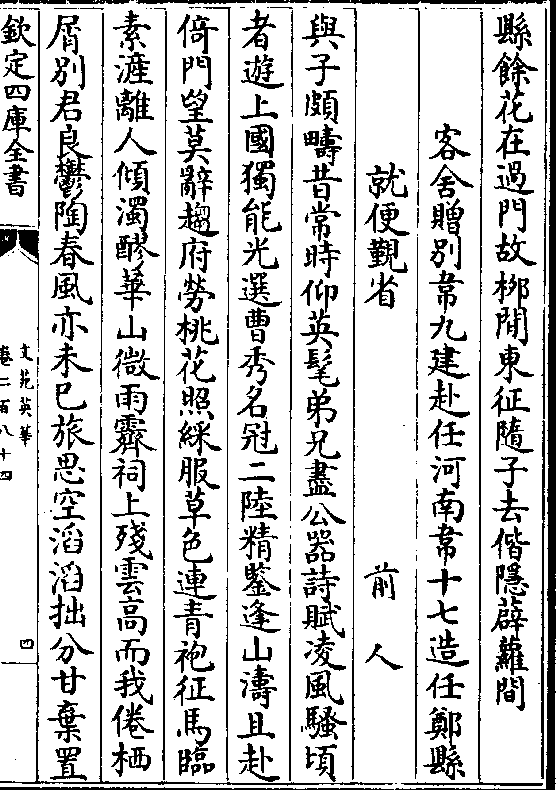 縣餘花在過門故栁閒東征隨子去偕隱薜蘿間
客舍贈別韋九建赴任河南韋十七造任鄭縣
就便覲省　前人
與子頗疇昔常時仰英髦弟兄盡公器詩賦凌風騷頃
者遊上國獨能光選曹秀名冠二陸精鑒逢山濤且赴
倚門望莫辭趨府勞桃花照綵服草色連青袍征馬臨
素滻離人傾濁醪華山微雨霽祠上殘雲高而我倦栖
屑別君良鬱陶春風亦未已旅思空滔滔拙分甘棄置
欽定四庫全書
文苑英華
卷二百八十四
四